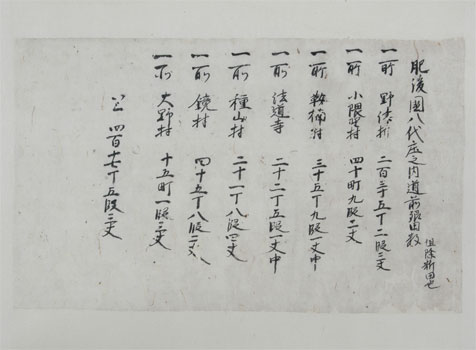 肥後国八代庄之内道前郷田数
但除新田也
一所 野津村 二百三十五丁二段三丈
一所 小隈野村 四十町九段二丈
一所 敷河内村 三十五丁九段一丈中
一所 法道寺 二十二丁五段一丈中
一所 種山村 二十一丁八段四丈
一所 鏡村 四十五丁八段二丈
一所 大野村 十五町一段三丈
以上 四百十七丁五段三丈